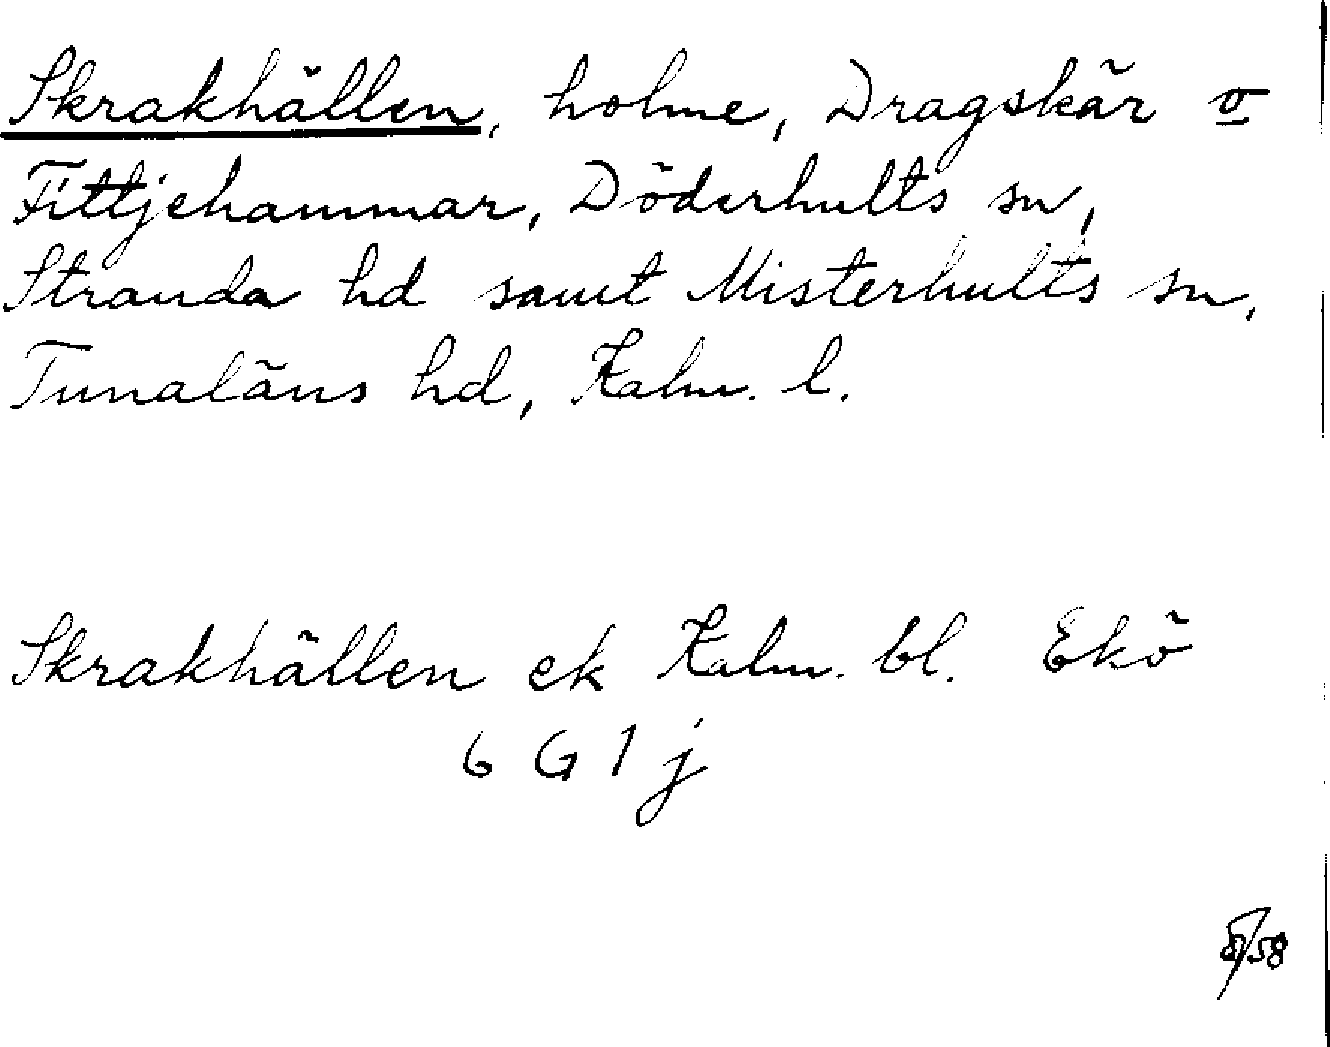 Skrakhällen, holme, Dragskär o
Fittjehammar, Döderhults sn,
Stranda hd samt Misterhults sn,
Tunaläns hd, Kalm. l.
Skrakhällen ek Kalm. bl. Ekö
6 G 1 j